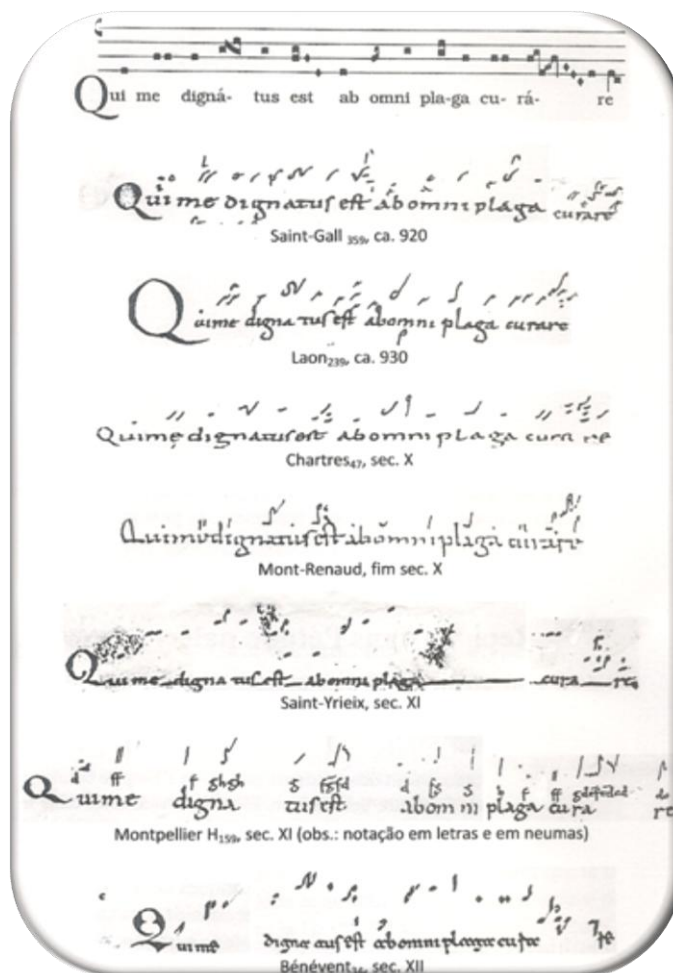 Qui me digná- tus est ab omni pla-ga cu- rá- re
Qui me dignatus est ab omni plaga curare
Saint-Gall 359, ca. 920
Quime digna tus est abomni plaga curare
Laon239, ca. 930
Quime dignatus est abomni plaga cura re
Chartres47, sec. X
Quime dignatus est abomni plaga curare
Mont-Renaud, fim sec. X
Quime digna tus est abomni plaga cura re
Saint-Yrieix, sec. XI
d ff f ghgh g d fg g
Quime digna tus est abomni plaga cura re
Montpellier H159, sec. XI (obs.: notação em letras e em neumas)
Quime dignatus est abomni plaga cura re
Bénévent34, sec. XII